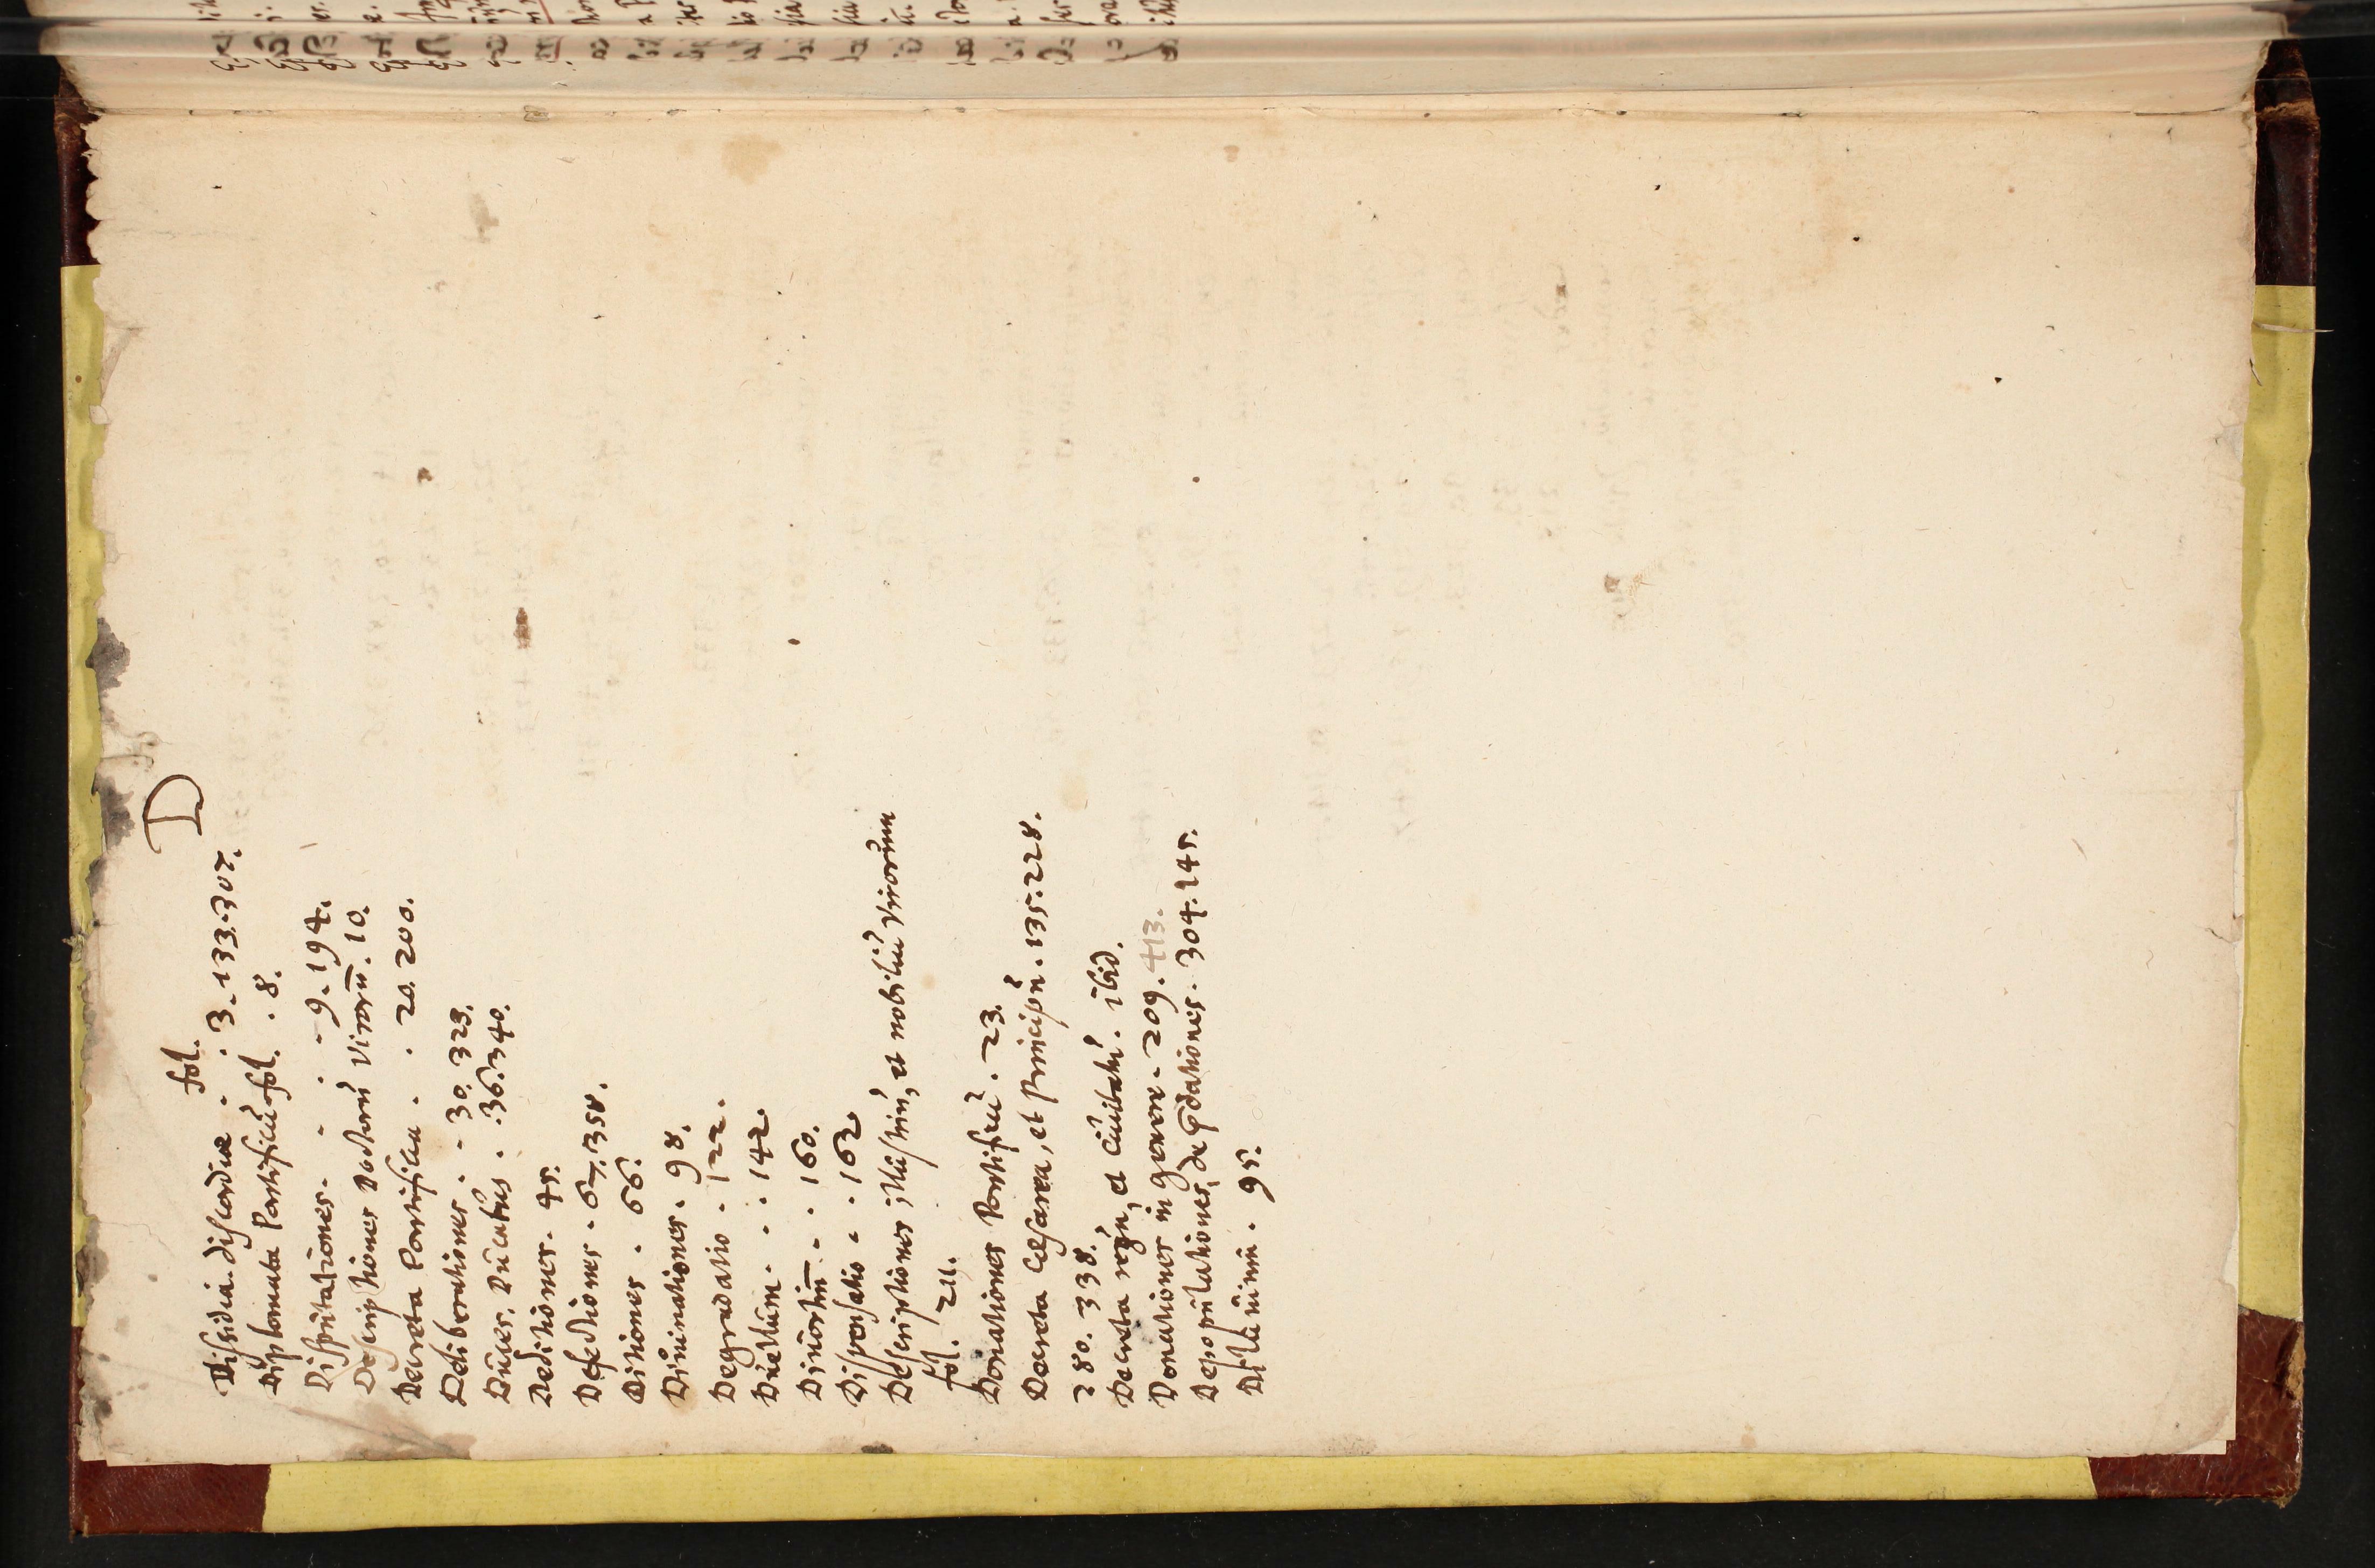 D
fol.
Dissidia. discordiae . . 3. 133. 307.
Diplomata Pontificũ fol. . 8.
Disputationes . . . 9. 194.
Descriptiones doctorũ virorũ . 10.
Decreta Pontificũ . . 20. 200.
Deliberationes . . 30. 323.
Duces. Ducatus . . 36. 340.
Deditiones . 45.
Defectiones . 67. 358.
Ditiones . 66.
Diuinationes . 98.
Degradatio . 122.
Duellum . . . 142
Diuortiũ . . . 160.
Dispensatio . . 162
Descriptiones illustriũ, et nobiliũ virorum
fol. 211.
Donationes Pontificũ . 23.
Decreta Caesarea, et Principũ . 135. 228.
280. 338.
Decreta regũ, et Ciuitatũ . ibid.
Donationes in genere . 209. 413.
Depopulationes, depdationes . 304. 245.
Diluuium . 95.